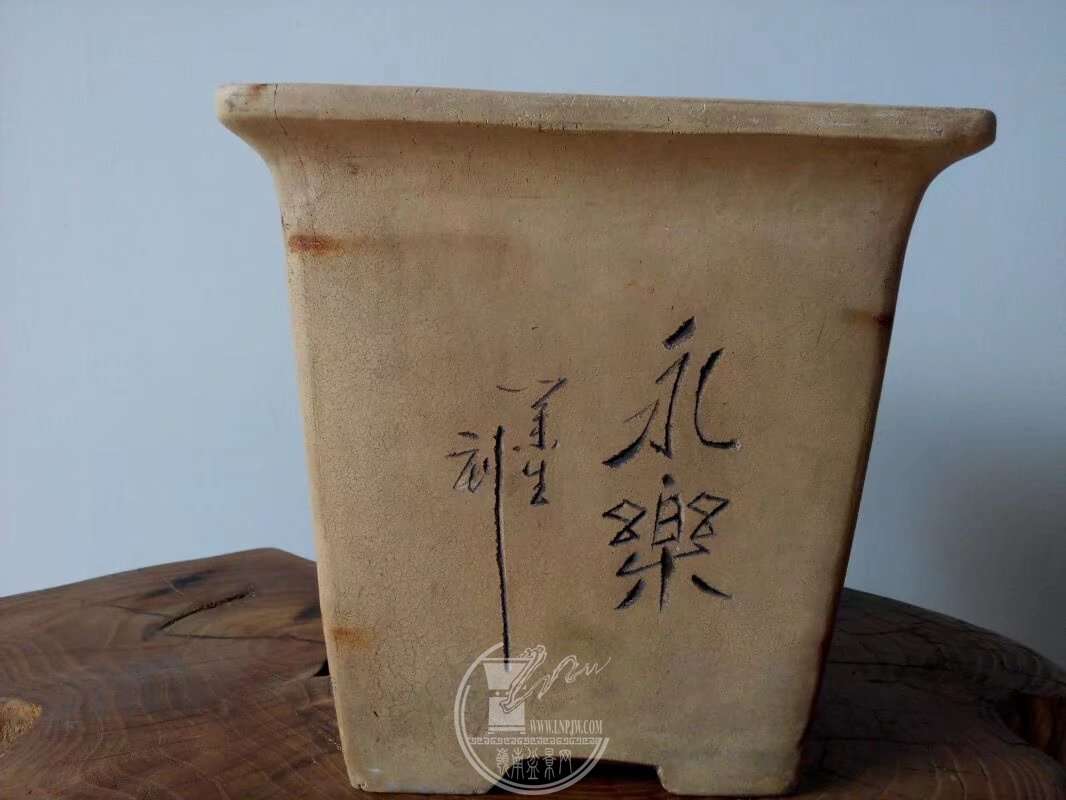 永樂
生
刻
WWW.LNPJW.COM
嶺南盆景网